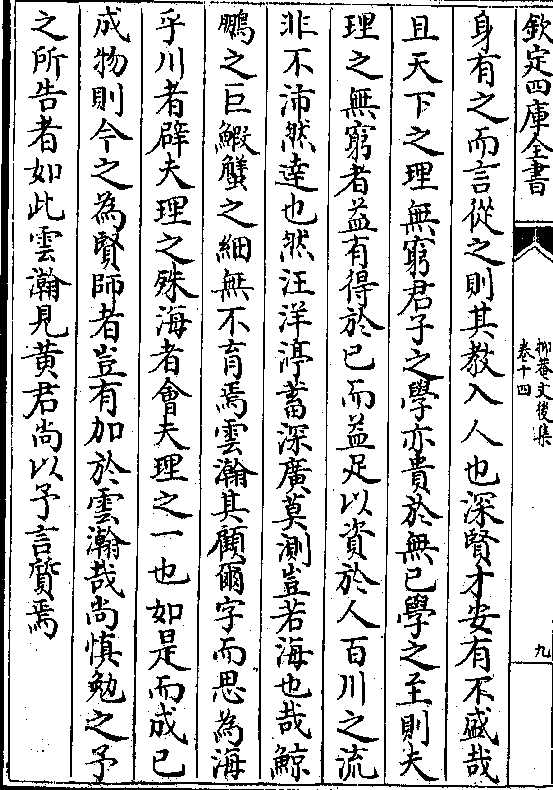 欽定四庫全書
柳菴文後集
卷十四
九
身有之而言從之則其教入人也深賢才安有不盛哉
且天下之理無窮君子之學亦貴於無已學之至則夫
理之無窮者益有得於已而益足以資於人百川之流
非不沛然逹也然汪洋渟蓄深廣莫測豈若海也哉鯨
鵬之巨鰕蟹之細無不育焉雲瀚其顧爾字而思為海
乎川者辟夫理之殊海者會夫理之一也如是而成已
成物則今之為賢師者豈有加於雲瀚哉尚慎勉之予
之所告者如此雲瀚見黄君尚以予言質焉